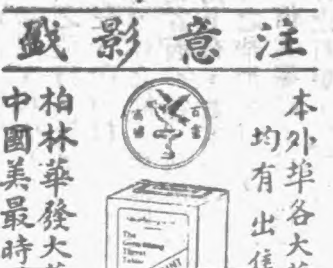 注意影戤
本外埠各大
均有出售
柏林華發大
中國美最時
The